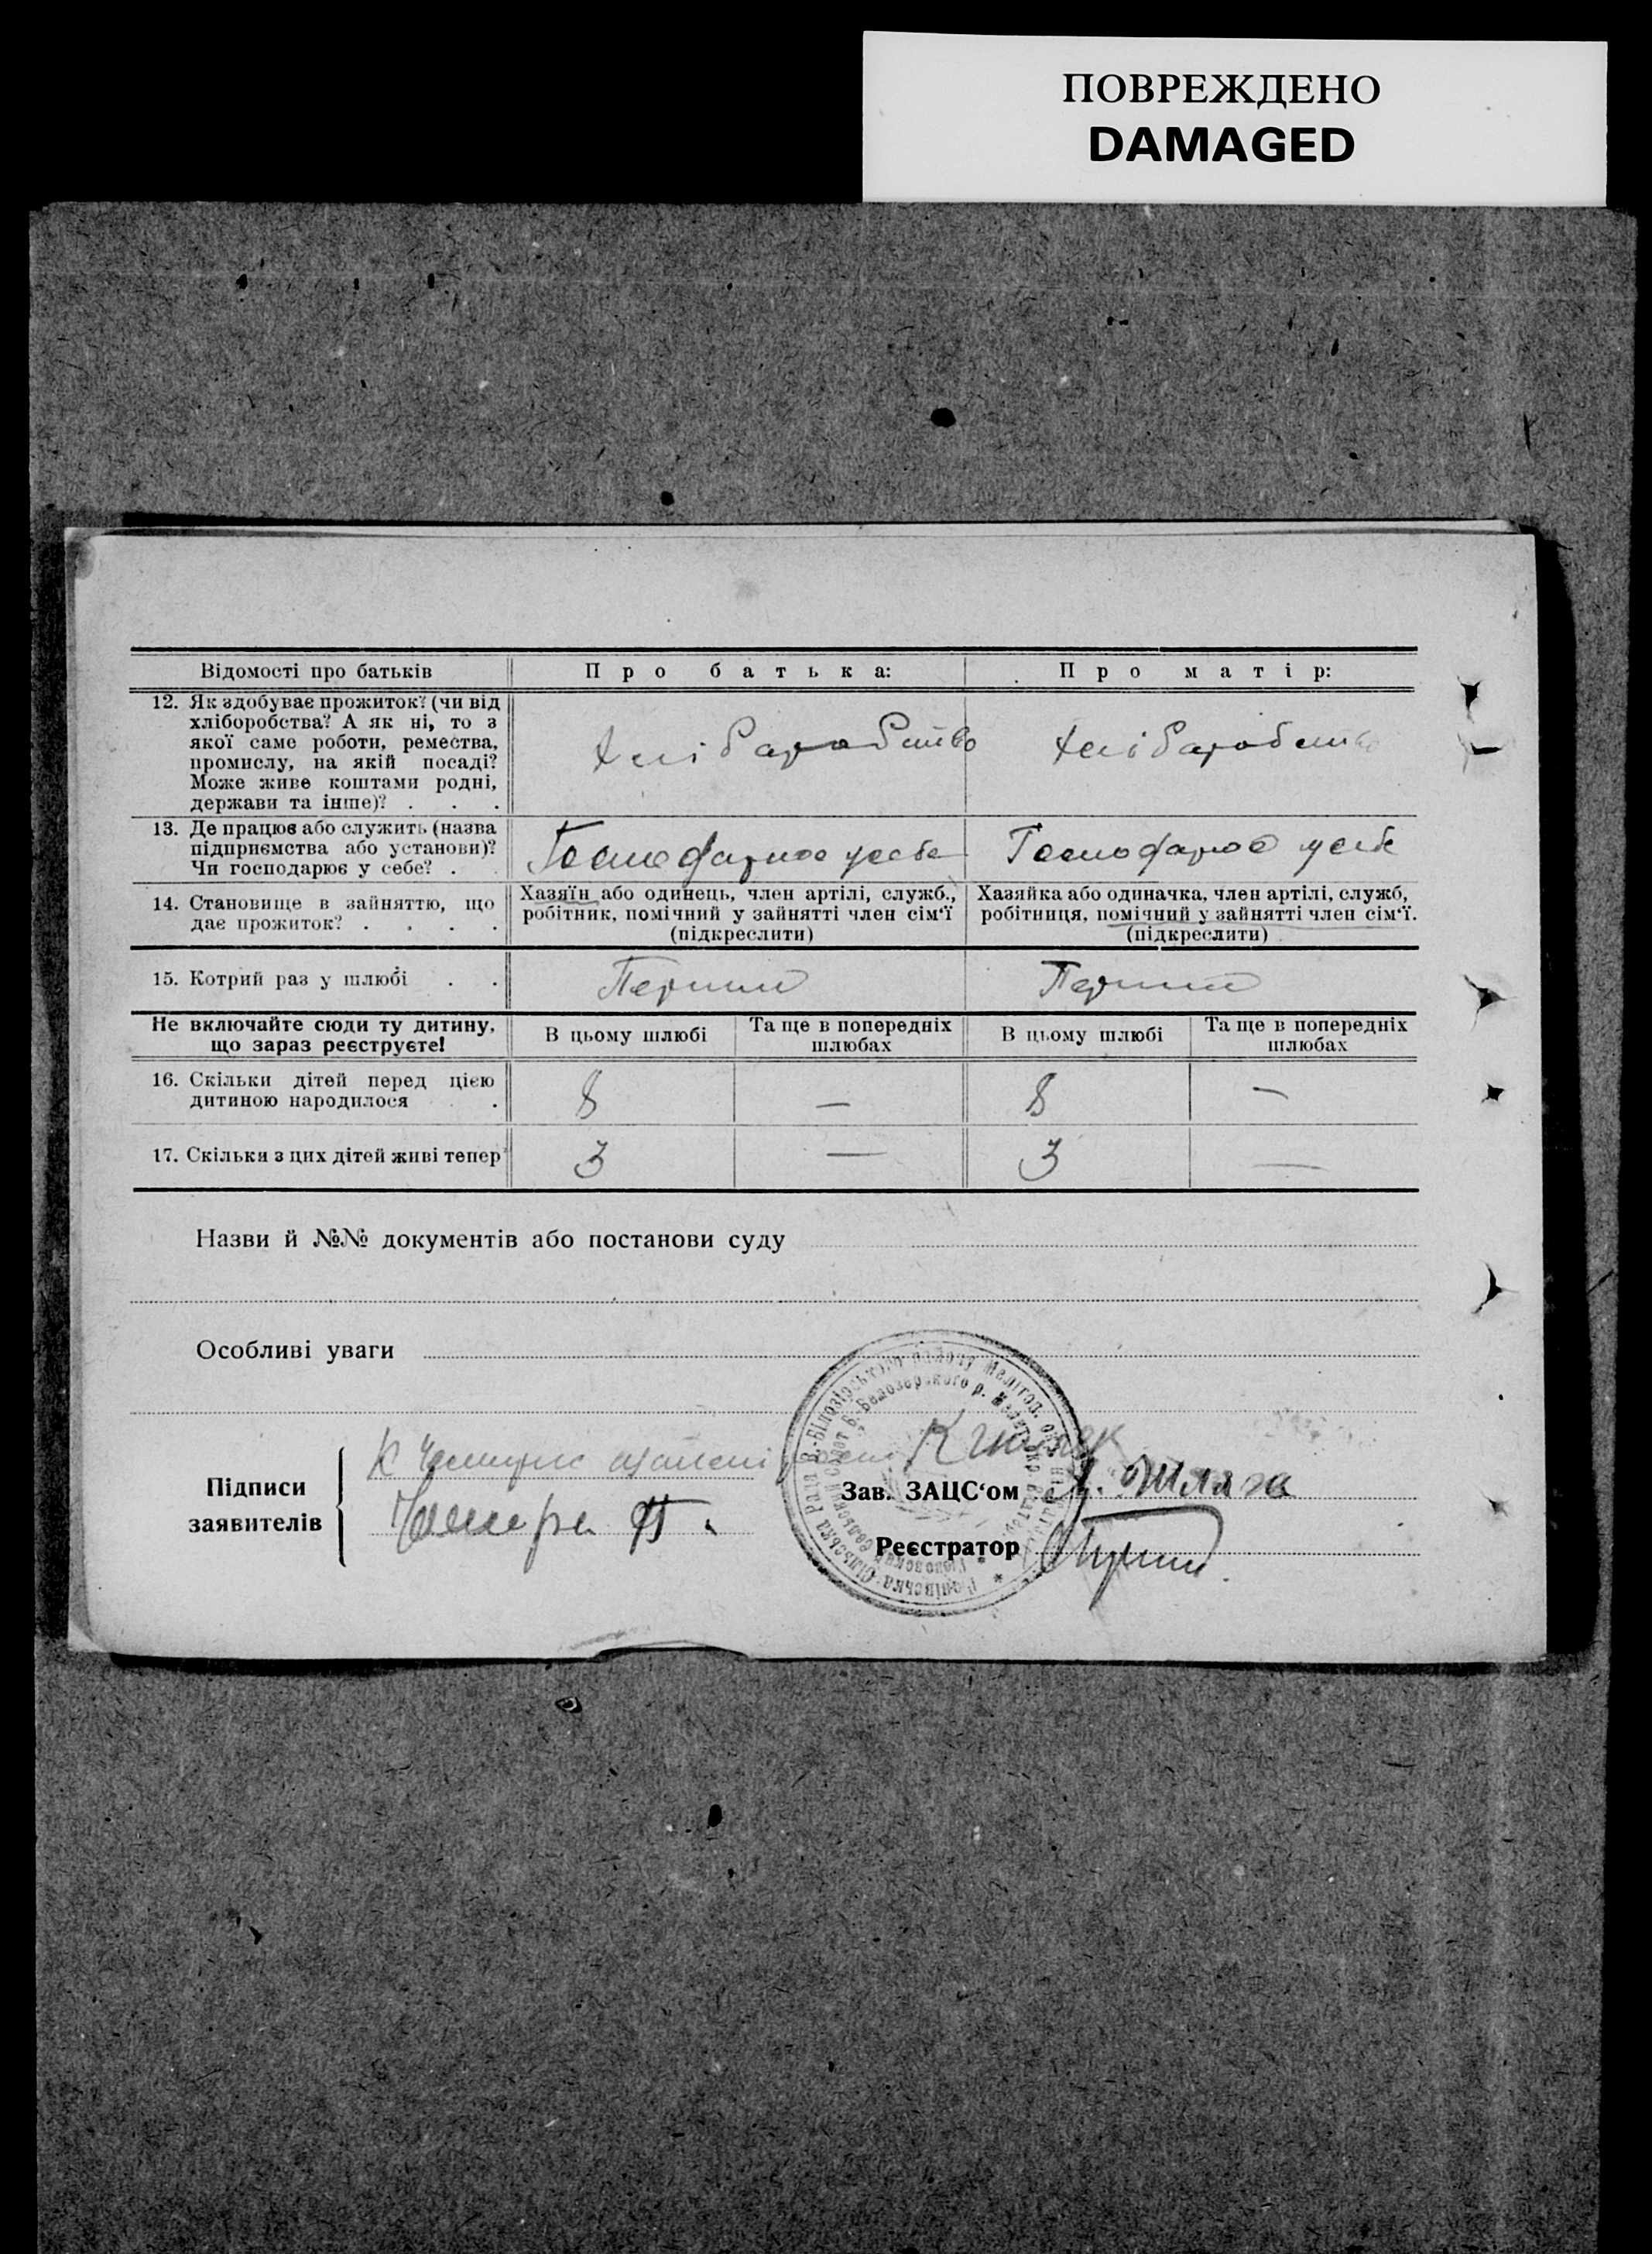 ПОВРЕЖДЕНО
DAMAGED
Відомості про батьків
Про батька:
Про матір:
12. Як здобуває прожиток? (чи від
хліборобства? А як ні, то з
якої саме роботи, ремества,
промислу, на якій посаді?
Може живе коштами родні,
держави та інше)? . . .
Хліборобство
Хліборобство
13. Де працює або служить (назва
підприємства або установи)?
Чи господарює у себе? .
Господарює у себе
Господарює у себе
14. Становище в зайняттю, що
дає прожиток? . . . .
Хазяїн або одинець, член артілі, служб.,
робітник, помічний у зайнятті член сім'ї
(підкреслити)
Хазяйка або одиначка, член артілі, служб,
робітниця, помічний у зайнятті член сім'ї.
(підкреслити)
15. Котрий раз у шлюбі . .
Перший
Перший
Не включайте сюди ту дитину,
що зараз реєструєте!
В цьому шлюбі
Та ще в попередніх
шлюбах
В цьому шлюбі
Та ще в попередніх
шлюбах
16. Скільки дітей перед цією
дитиною народилося .
8
—
8
—
17. Скільки з цих дітей живі тепер
3
—
3
—
Назви й №№ документів або постанови суду
Особливі уваги
Підписи
заявителів
Зав. ЗАЦС'ом
Реєстратор